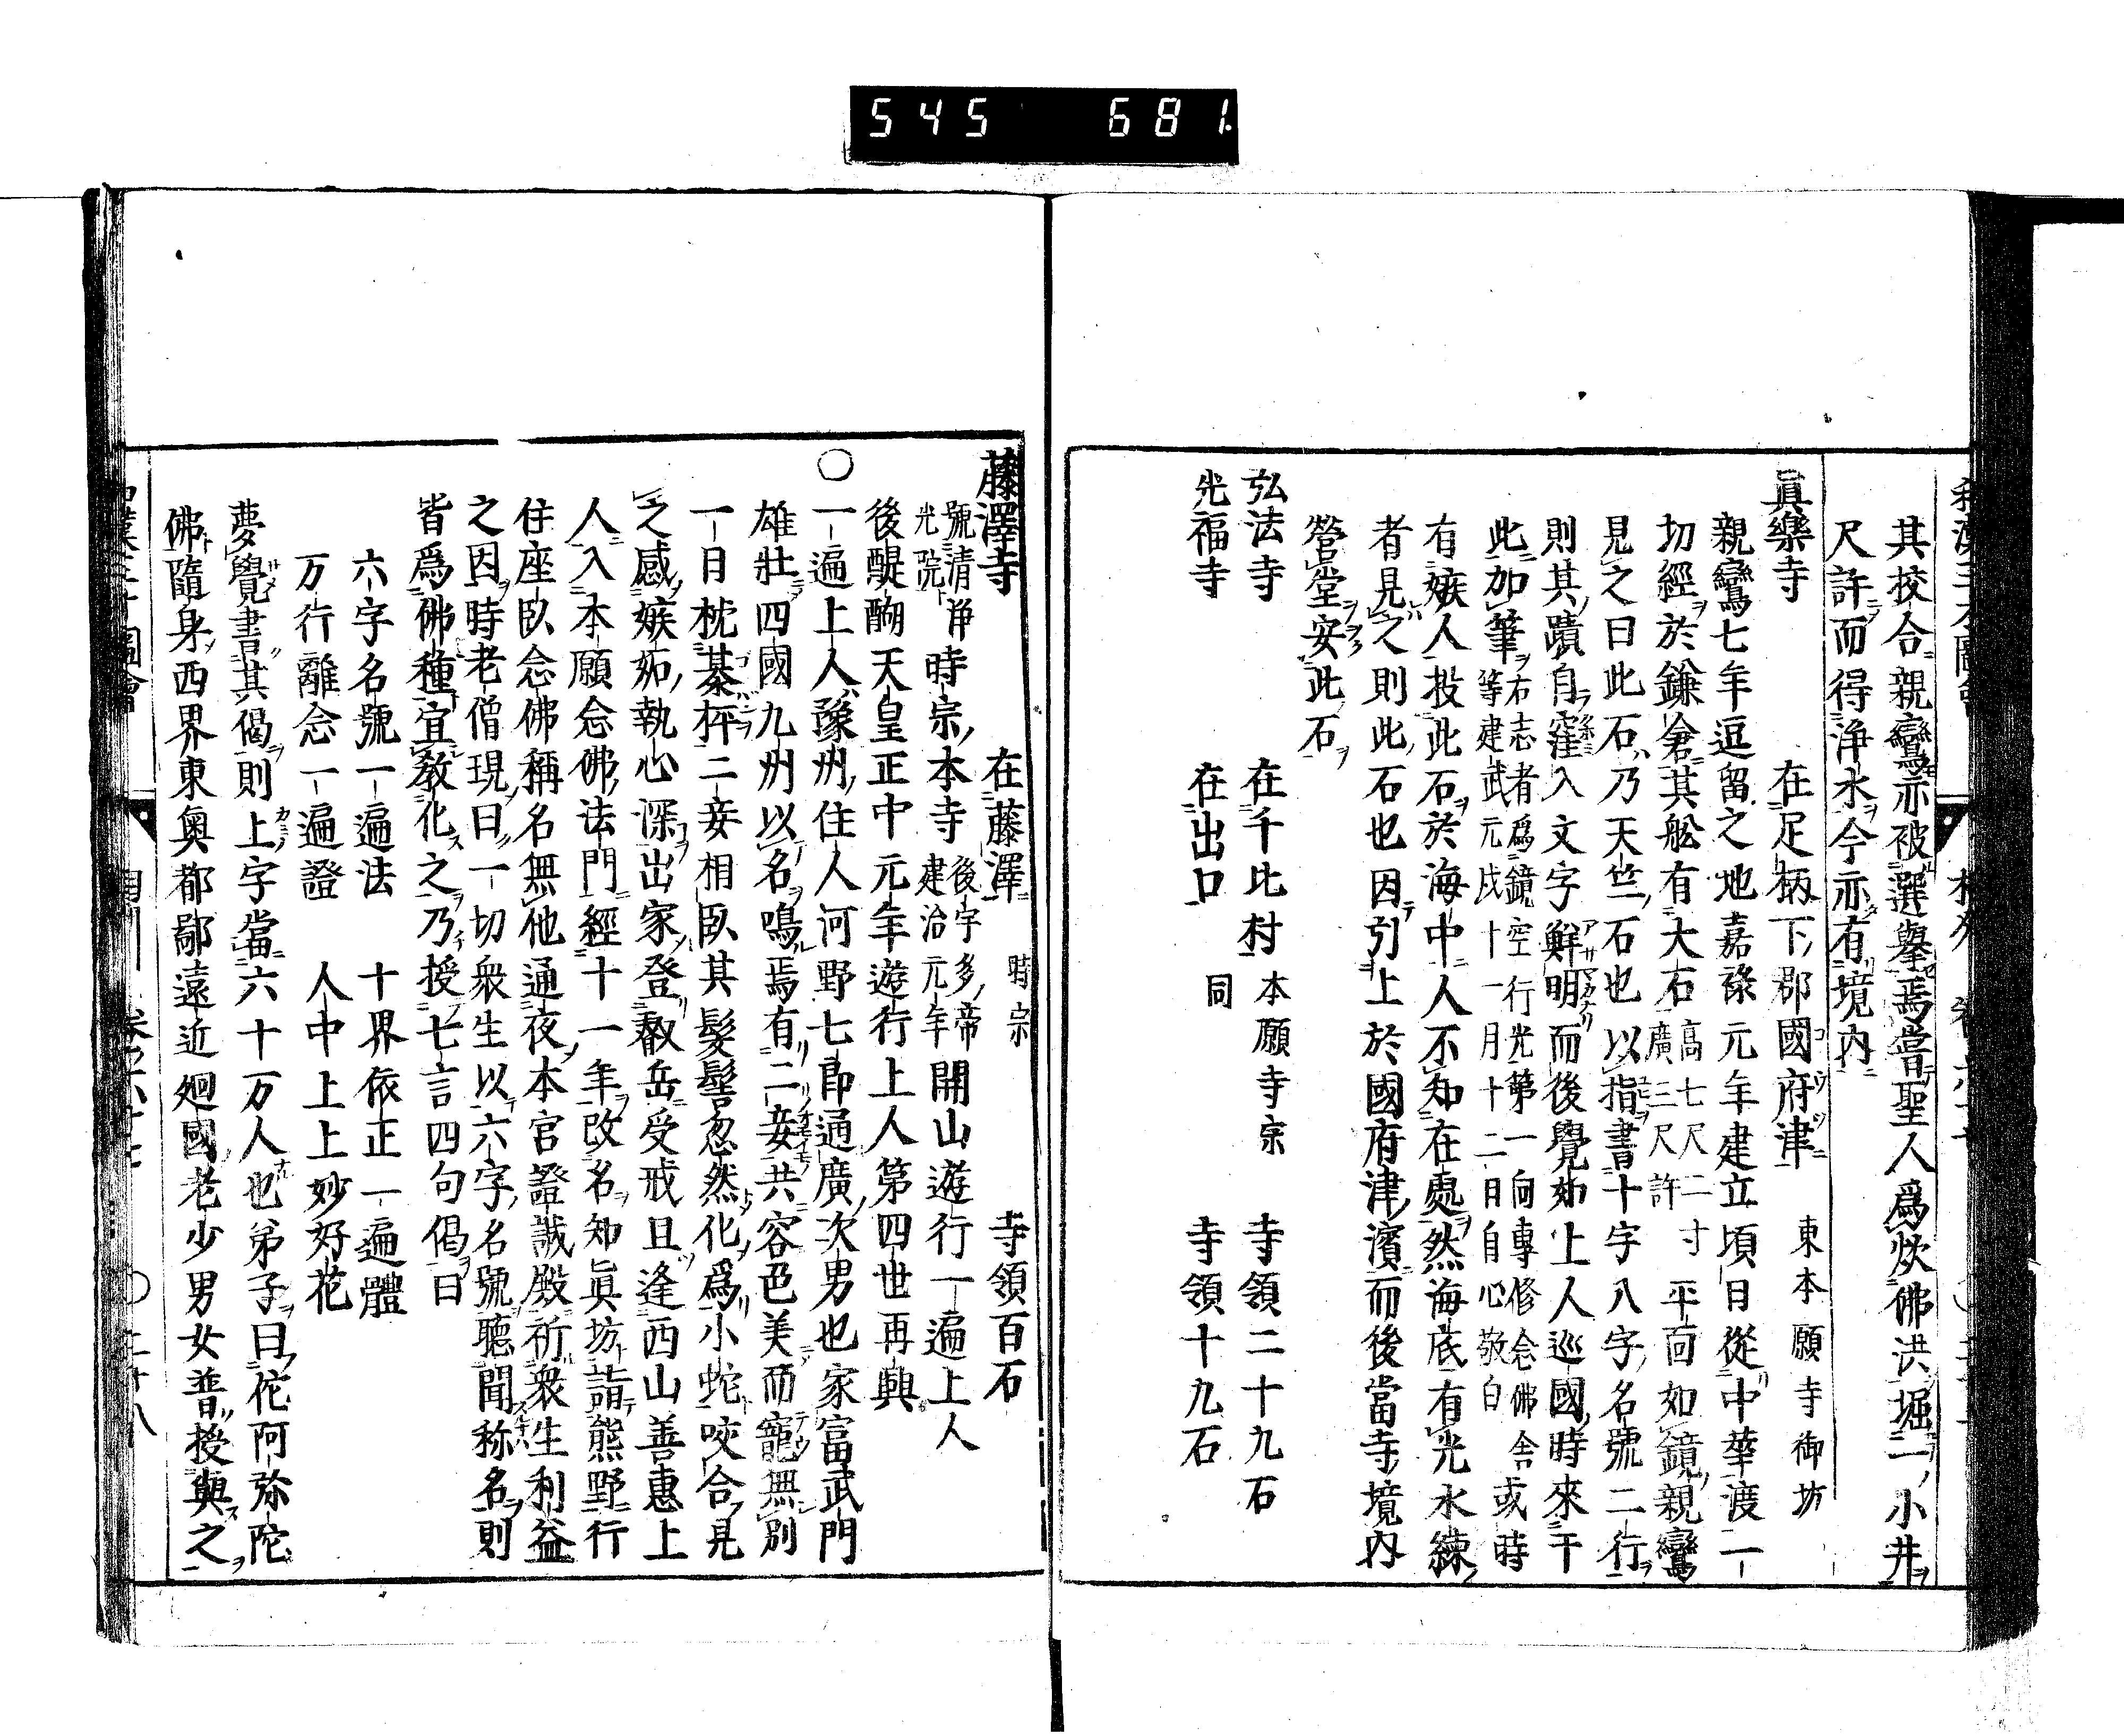 545 681
其校合親鸞亦被選擧焉當聖人爲炊佛洪堀一小井
尺許而得浄水今亦有境内
眞樂寺 在足柄下郡國府津 東本願寺御坊
親鸞七年逗留之地嘉祿元年建立頃日從中華渡一
切經於鎌倉其舩有大石高七尺二寸廣三尺許平面如鏡親鸞
見之曰此石乃天竺石也以指書十字八字名號二行
則其蹟自窪入文字鮮明而後覺如上人巡國時來于
此加筆右志者爲鏡空行光第一向專修念佛舎等建武元戌十一月十二日自心敬白或時
有嫉人投此石於海中人不知在處然海底有光水練
者見之則此石也因引上於國府津濱而後當寺境内
營堂安此石
弘法寺 在千比村 本願寺宗 寺領二十九石
光福寺 在出口 同 寺領十九石
藤澤寺 在藤澤 時宗 寺領百石
號清浄光院 時宗本寺 後宇多帝建治元年 開山遊行一遍上人
後醍醐天皇正中元年遊行上人第四世再興
○一遍上人豫州住人河野七郎通廣次男也家富武門
雄壮四國九州以名鳴焉有二妾共容色美而寵無別
一日枕棊枰二妾相臥其髪髻忽然化爲小蛇咬合見
之感嫉妬執心深出家登叡岳受戒且逢西山善惠上
人入本願念佛法門經十一年改名知眞坊詣熊野行
住座臥念佛稱名無他通夜本宮證誠殿祈衆生利益
之因時老僧現曰一切衆生以六字名號聽聞称名則
皆爲佛種宜教化之乃授七言四句偈曰
六字名號一遍法 十界依正一遍體
万行離念一遍證 人中上上妙好花
夢覺書其偈則上字當六十万人也弟子曰佗阿弥陀
佛隨身西界東奥都鄙遠近廻國老少男女普授與之